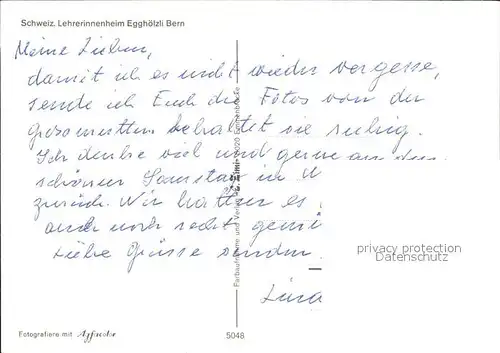 Schweiz. Lehrerinnenheim Egghölzli Bern
Meine Lieben,
damit ich es nicht wieder vergesse,
sende ich Euch die Fotos von der
Grosmutter behaltet sie ruhig.
Ich denke viel und gerne an den
schönen Samstag in W
zurück. Wir hatten es
auch noch recht gemü
Liebe Grüsse senden
Lina
privacy protection
Datenschutz
Farbaufnahme und Verlag
Fotografiere mit Agfacolor
5048